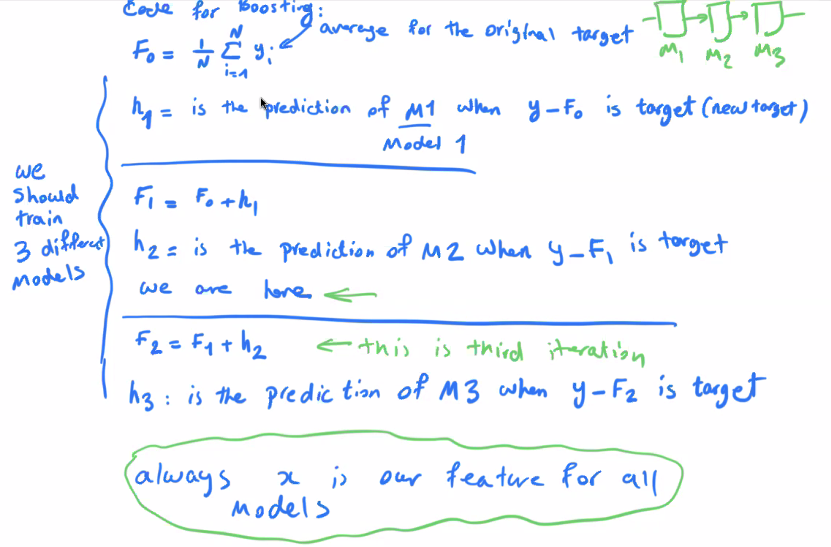 Code for Boosting:
average for the original target
F₀ = 1/N Σ_{i=1}^{N} yᵢ
M₁ M₂ M₃
h₁ = is the prediction of M1 when y-F₀ is target (new target)
Model 1
we
should
train
3 different
models
F₁ = F₀ + h₁
h₂ = is the prediction of M2 when y-F₁ is target
we are here ←
F₂ = F₁ + h₂ ← this is third iteration
h₃ : is the prediction of M3 when y-F₂ is target
always x is our feature for all
models